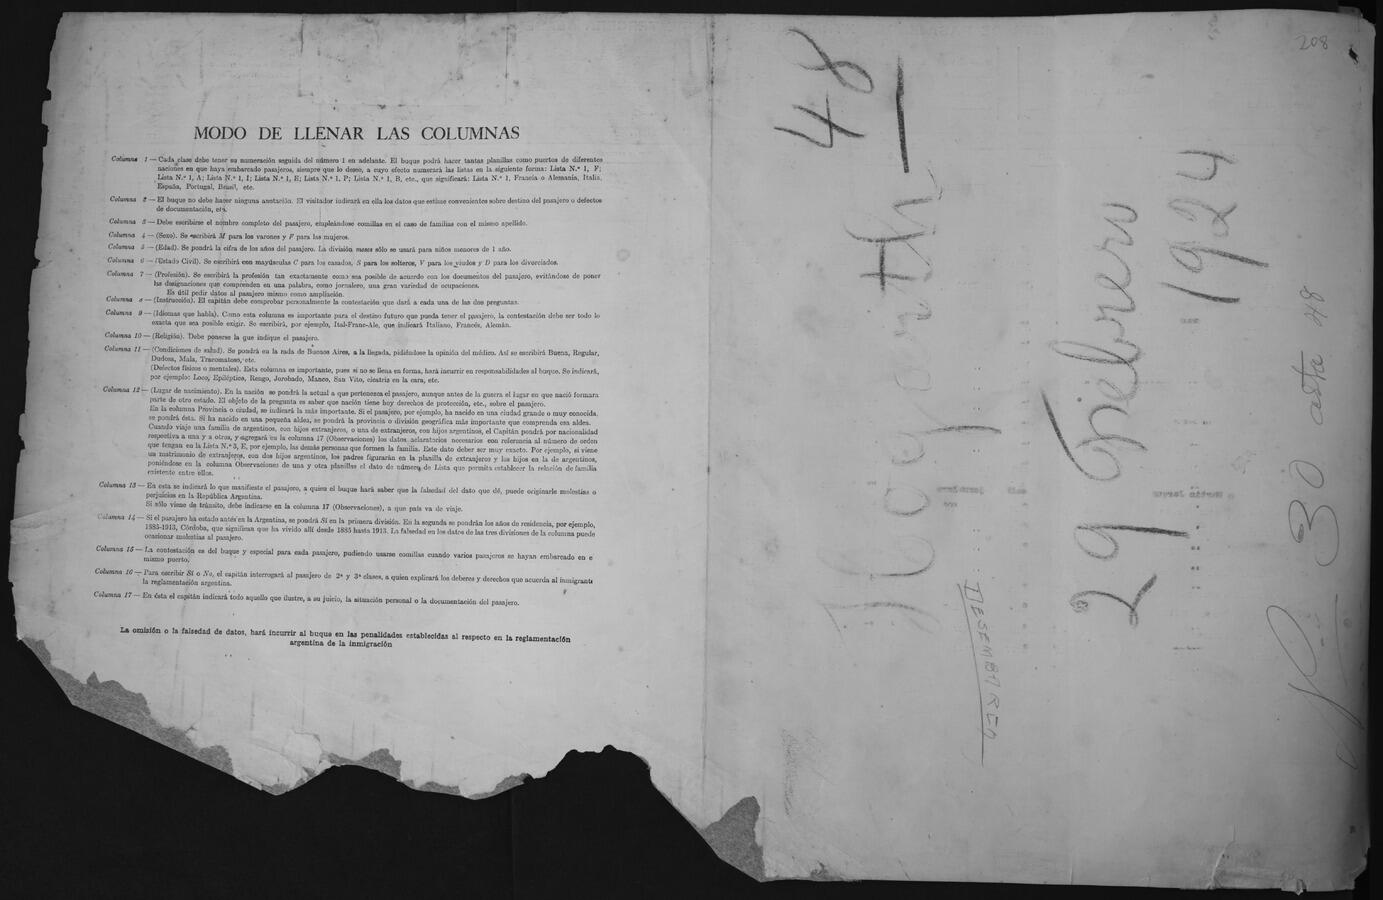 MODO DE LLENAR LAS COLUMNAS
Columna 1 — Cada clase debe tener su numeración seguida del número 1 en adelante. El buque podrá hacer tantas planillas como puertos de diferentes
naciones en que haya embarcado pasajeros, siempre que lo desee, a cuyo efecto numerará las listas en la siguiente forma: Lista N.º 1, F;
Lista N.º 1, A; Lista N.º 1, I; Lista N.º 1, E; Lista N.º 1, P; Lista N.º 1, B, etc., que significará: Lista N.º 1, Francia o Alemania, Italia,
España, Portugal, Brasil, etc.
Columna 2 — El buque no debe hacer ninguna anotación. El visitador indicará en ella los datos que estime convenientes sobre destino del pasajero o defectos
de documentación, etc.
Columna 3 — Debe escribirse el nombre completo del pasajero, empleándose comillas en el caso de familias con el mismo apellido.
Columna 4 — (Sexo). Se escribirá M para los varones y F para las mujeres.
Columna 5 — (Edad). Se pondrá la cifra de los años del pasajero. La división meses sólo se usará para niños menores de 1 año.
Columna 6 — (Estado Civil). Se escribirá con mayúsculas C para los casados, S para los solteros, V para los viudos y D para los divorciados.
Columna 7 — (Profesión). Se escribirá la profesión tan exactamente como sea posible de acuerdo con los documentos del pasajero, evitándose de poner
las designaciones que comprenden en una palabra, como jornalero, una gran variedad de ocupaciones.
Es útil pedir datos al pasajero mismo como ampliación.
Columna 8 — (Instrucción). El capitán debe comprobar personalmente la contestación que dará a cada una de las dos preguntas.
Columna 9 — (Idiomas que habla). Como esta columna es importante para el destino futuro que pueda tener el pasajero, la contestación debe ser todo lo
exacta que sea posible exigir. Se escribirá, por ejemplo, Ital-Franc-Ale, que indicará Italiano, Francés, Alemán.
Columna 10 — (Religión). Debe ponerse la que indique el pasajero.
Columna 11 — (Condiciones de salud). Se pondrá en la rada de Buenos Aires, a la llegada, pidiéndose la opinión del médico. Así se escribirá Buena, Regular,
Dudosa, Mala, Tracomatoso, etc.
(Defectos físicos o mentales). Esta columna es importante, pues si no se llena en forma, hará incurrir en responsabilidades al buque. Se indicará,
por ejemplo: Loco, Epiléptico, Rengo, Jorobado, Manco, San Vito, cicatriz en la cara, etc.
Columna 12 — (Lugar de nacimiento). En la nación se pondrá la actual a que pertenezca el pasajero, aunque antes de la guerra el lugar en que nació formara
parte de otro estado. El objeto de la pregunta es saber que nación tiene hoy derechos de protección, etc., sobre el pasajero.
En la columna Provincia o ciudad, se indicará la más importante. Si el pasajero, por ejemplo, ha nacido en una ciudad grande o muy conocida,
se pondrá ésta. Si ha nacido en una pequeña aldea, se pondrá la provincia o división geográfica más importante que comprenda esa aldea.
Cuando viaje una familia de argentinos, con hijos extranjeros, o una de extranjeros, con hijos argentinos, el Capitán pondrá por nacionalidad
respectiva a una y a otros, y agregará en la columna 17 (Observaciones) los datos aclaratorios necesarios con referencia al número de orden
que tengan en la Lista N.º 3, E, por ejemplo, las demás personas que formen la familia. Este dato deber ser muy exacto. Por ejemplo, si viene
un matrimonio de extranjeros, con dos hijos argentinos, los padres figurarán en la planilla de extranjeros y los hijos en la de argentinos,
poniéndose en la columna Observaciones de una y otra planillas el dato de número de Lista que permita establecer la relación de familia
existente entre ellos.
Columna 13 — En esta se indicará lo que manifieste el pasajero, a quien el buque hará saber que la falsedad del dato que dé, puede originarle molestias o
perjuicios en la República Argentina.
Si sólo viene de tránsito, debe indicarse en la columna 17 (Observaciones), a que país va de viaje.
Columna 14 — Si el pasajero ha estado antes en la Argentina, se pondrá Sí en la primera división. En la segunda se pondrán los años de residencia, por ejemplo,
1885-1913, Córdoba, que significan que ha vivido allí desde 1885 hasta 1913. La falsedad en los datos de las tres divisiones de la columna puede
ocasionar molestias al pasajero.
Columna 15 — La contestación es del buque y especial para cada pasajero, pudiendo usarse comillas cuando varios pasajeros se hayan embarcado en e
mismo puerto.
Columna 16 — Para escribir Sí o No, el capitán interrogará al pasajero de 2ª y 3ª clases, a quien explicará los deberes y derechos que acuerda al inmigrante
la reglamentación argentina.
Columna 17 — En ésta el capitán indicará todo aquello que ilustre, a su juicio, la situación personal o la documentación del pasajero.
La omisión o la falsedad de datos, hará incurrir al buque en las penalidades establecidas al respecto en la reglamentación
argentina de la inmigración
48
DESEMBARCO
29 Fiebrero
1924
30 asta 48
208